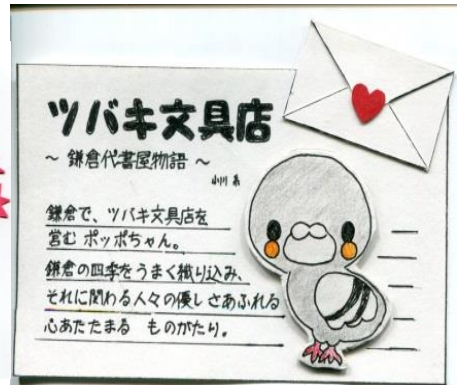 ツバキ文具店
～鎌倉代書屋物語～
小川 糸
鎌倉で、ツバキ文具店を
営む ポッポちゃん。
鎌倉の四季をうまく織り込み、
それに関わる人々の優しさあふれる
心あたたまる ものがたり。